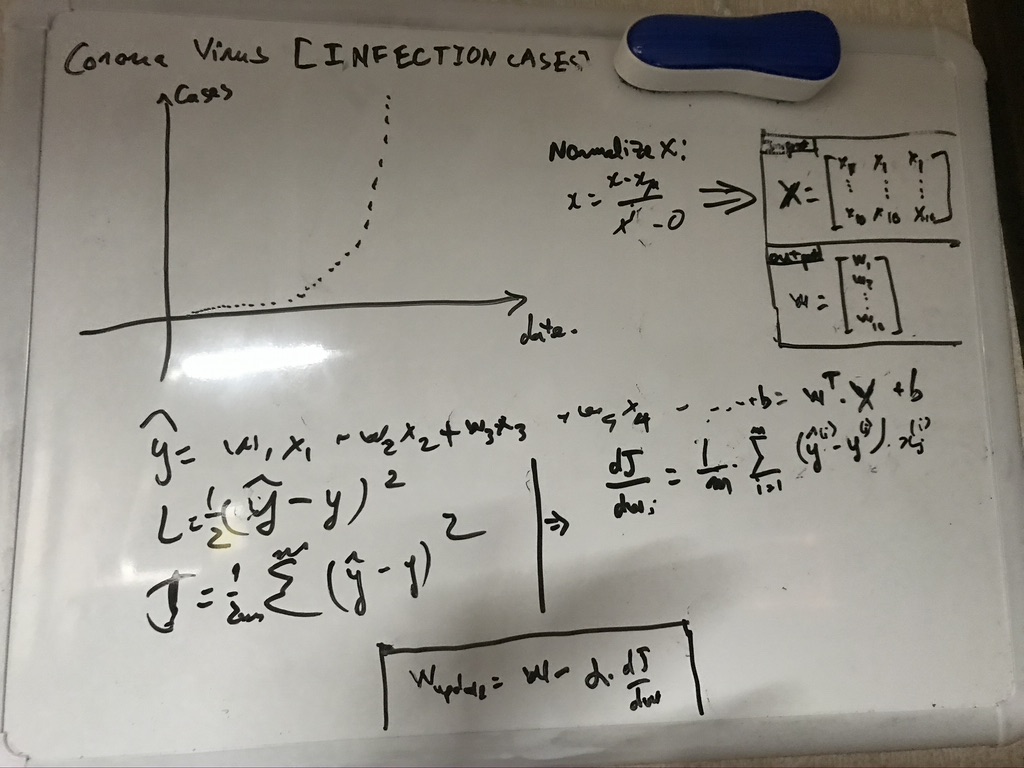 Corona Virus [INFECTION CASES]
Cases
date.
Normalize X:
x = x - xμ / x - 0 ⇒
X = [x1 x1 x1 ⋮ ⋮ ⋮ x10 x10 x10]
output
w = [w1 w2 ⋮ w10]
ŷ = w1 x1 + w2 x2 + w3 x3 + w4 x4 - ....+b = wᵀ. X + b
L = 1/2 (ŷ - y)²
J = 1/2m Σᵐ (ŷ - y)²
⇒ dJ/dwi = 1/m . Σᵐ i=1 (ŷ⁽ⁱ⁾ - y⁽ⁱ⁾) . xj⁽ⁱ⁾
Wupdate = w - α. dJ/dw